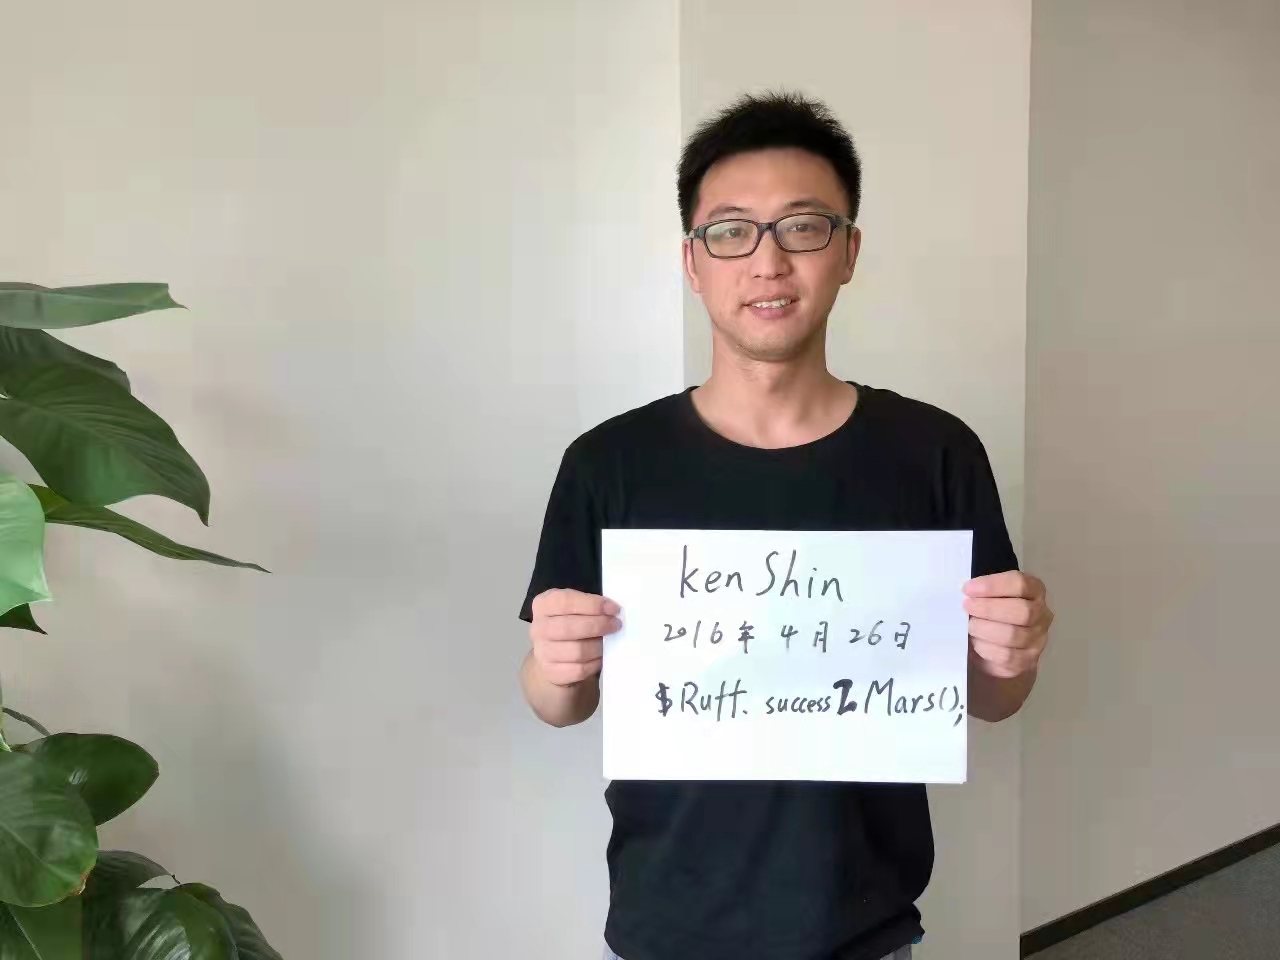 ken Shin
2016年 4月 26日
$Ruff. success2Mars();